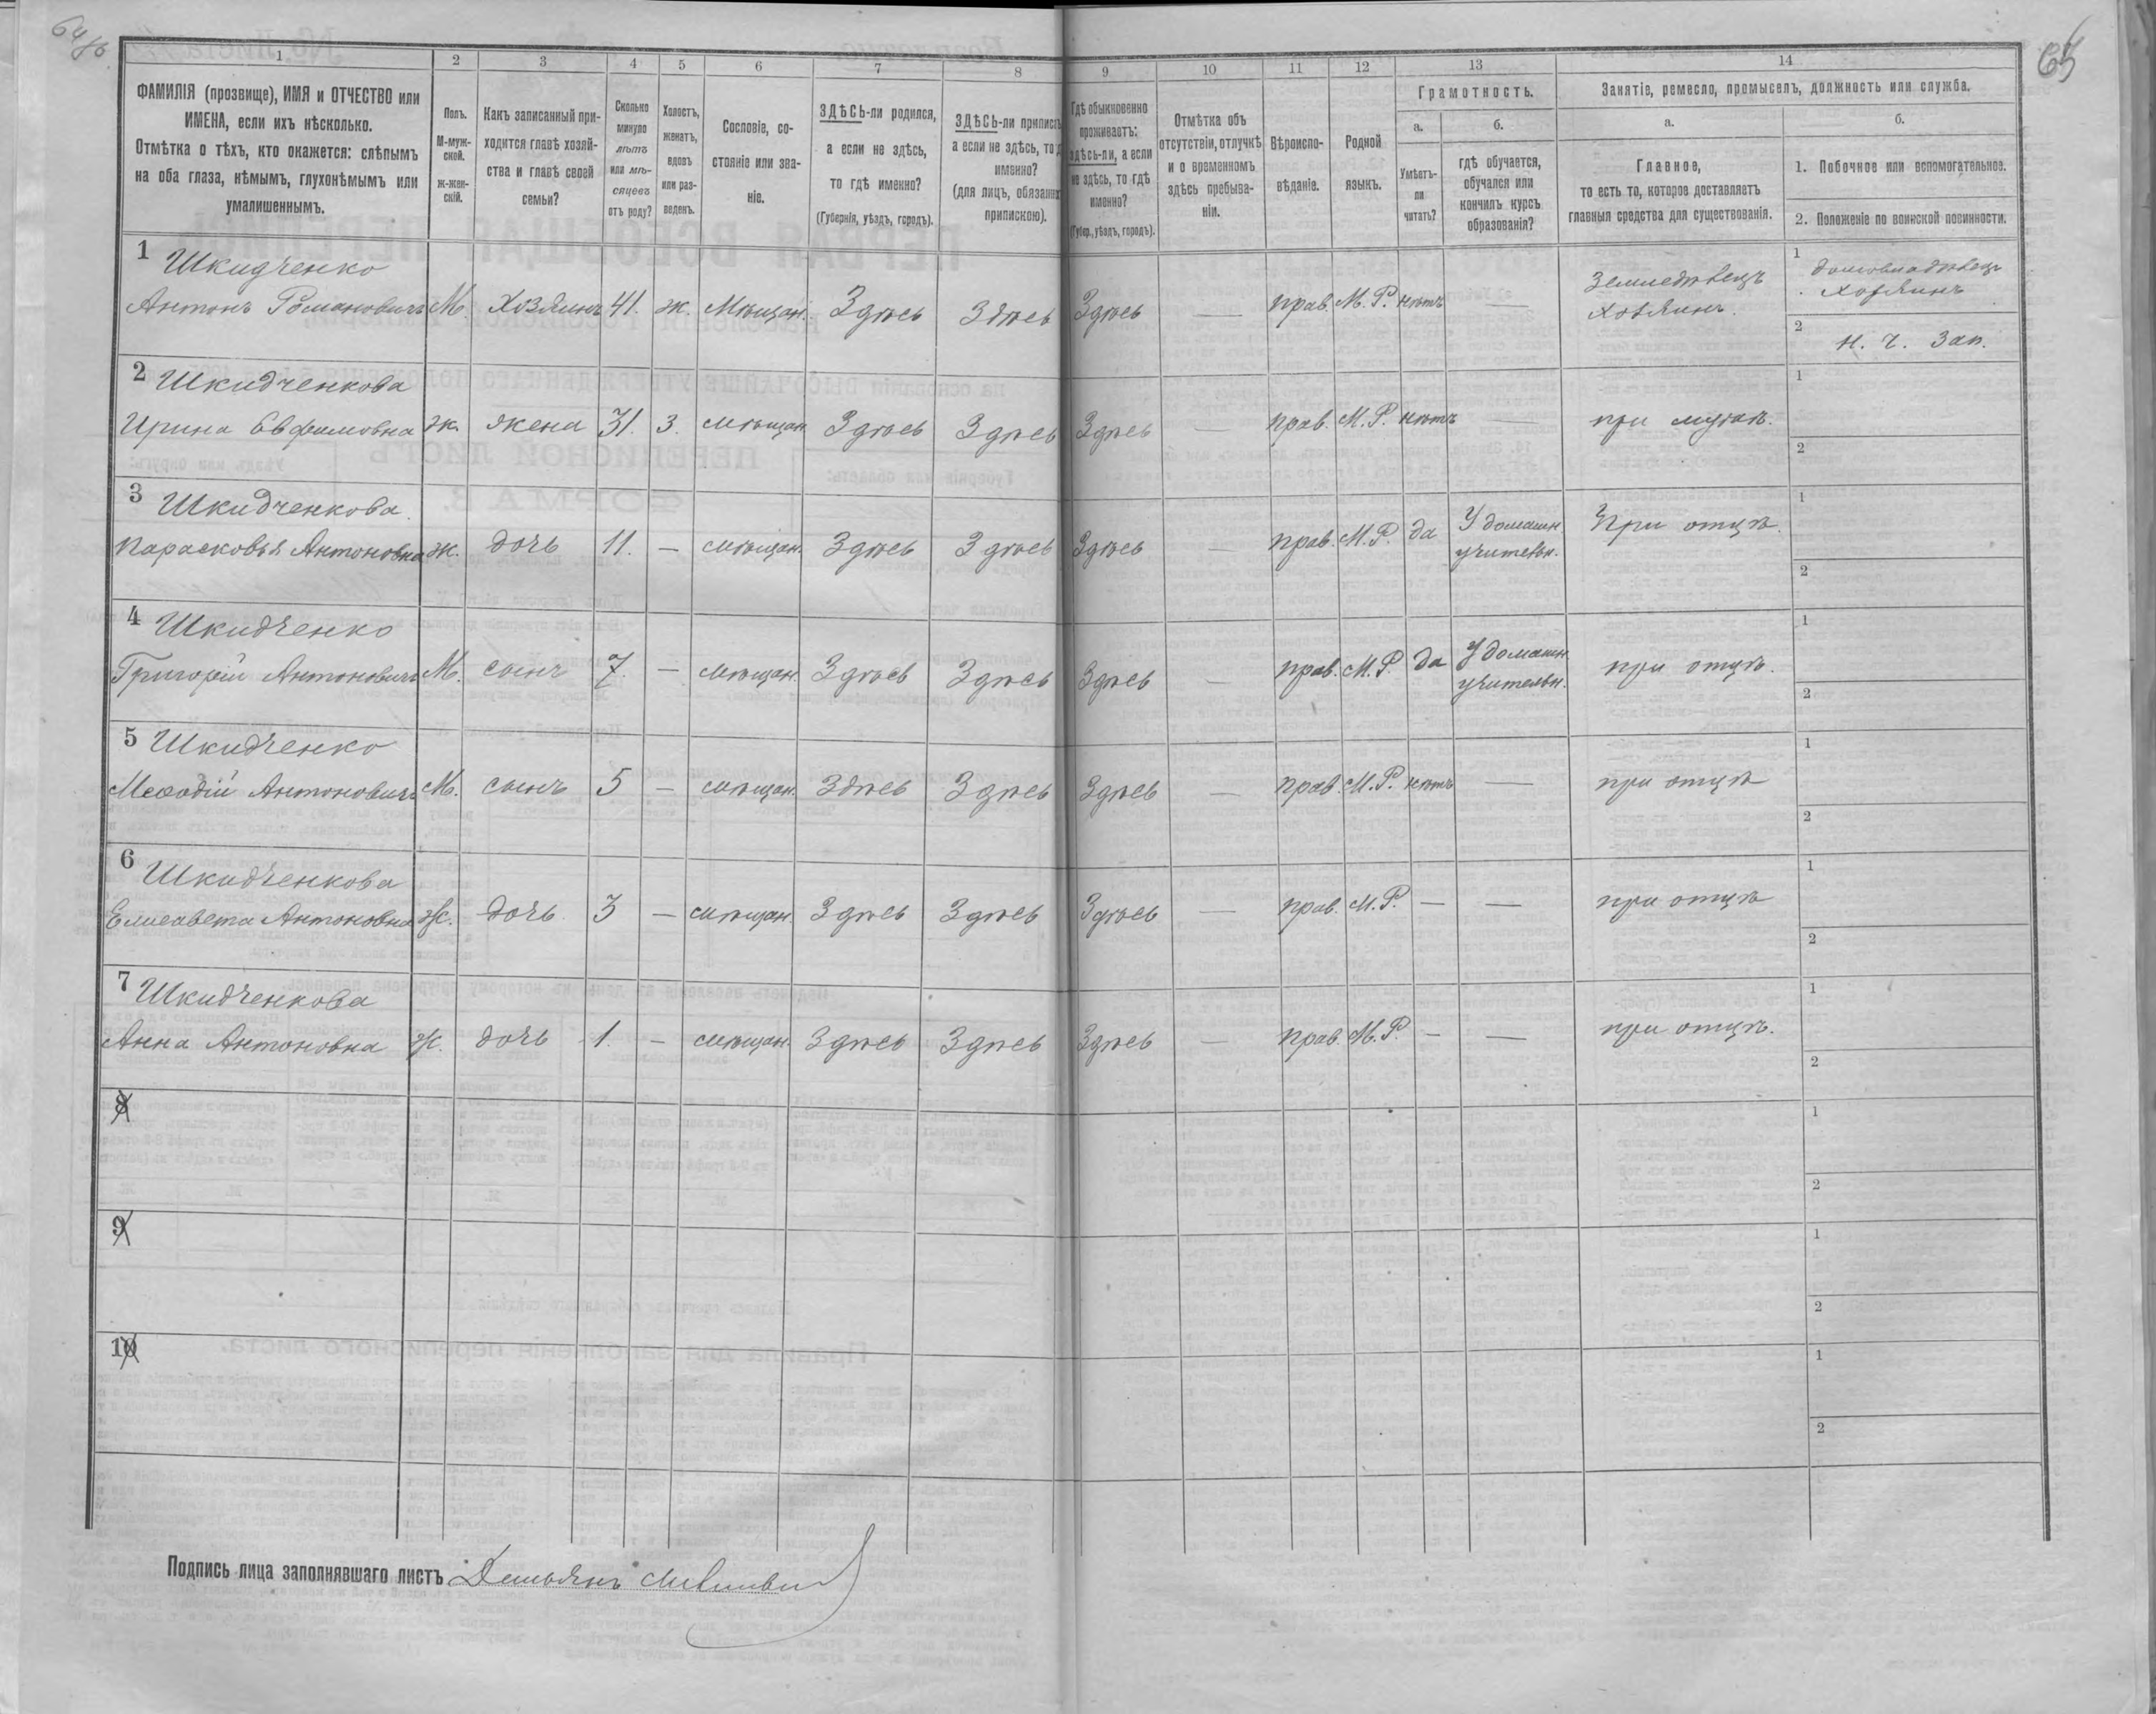 64 об.
65
1
2
3
4
5
6
7
8
9
10
11
12
13
14
ФАМИЛІЯ (прозвище), ИМЯ и ОТЧЕСТВО или
ИМЕНА, если ихъ нѣсколько.
Отмѣтка о тѣхъ, кто окажется: слѣпымъ
на оба глаза, нѣмымъ, глухонѣмымъ или
умалишеннымъ.
Полъ.
М-муж-
ской.
ж-жен-
скій.
Какъ записанный при-
ходится главѣ хозяй-
ства и главѣ своей
семьи?
Сколько
минуло
лѣтъ
или мѣ-
сяцевъ
отъ роду?
Холостъ,
женатъ,
вдовъ
или раз-
веденъ.
Сословіе, со-
стояніе или зва-
ніе.
ЗДѢСЬ-ли родился,
а если не здѣсь,
то гдѣ именно?
(Губернія, уѣздъ, городъ).
ЗДѢСЬ-ли приписа
а если не здѣсь, то г
именно?
(для лицъ, обязанн
припискою).
Гдѣ обыкновенно
проживаетъ:
здѣсь-ли, а если
не здѣсь, то гдѣ
именно?
(Губер., уѣздъ, городъ).
Отмѣтка объ
отсутствіи, отлучкѣ
и о временномъ
здѣсь пребыва-
ніи.
Вѣроиспо-
вѣданіе.
Родной
языкъ.
Грамотность.
а.
б.
Умѣетъ-
ли
читать?
гдѣ обучается,
обучался или
кончилъ курсъ
образованія?
Занятіе, ремесло, промыселъ, должность или служба.
а.
б.
Главное,
то есть то, которое доставляетъ
главныя средства для существованія.
1. Побочное или вспомогательное.
2. Положеніе по воинской повинности.
1 Шкидченко
Антонъ Романовичъ М. Хозяинъ 41. ж. Мѣщан. Здѣсь Здѣсь Здѣсь — прав. М. Р. нѣтъ —
Земледѣлецъ
Хозяинъ.
1 домовладѣлец
Хозяинъ
2 Н. Ч. Зап.
2 Шкидченкова
Ирина Евфимовна ж. жена 31. З. мѣщан. Здѣсь Здѣсь Здѣсь — прав. М. Р. нѣтъ — при мужѣ.
1
2
3 Шкидченкова
Парасковья Антоновна ж. дочь 11. — мѣщан. Здѣсь Здѣсь Здѣсь — прав. М. Р. да
У домашн
учительн.
При отцѣ.
1
2
4 Шкидченко
Григорій Антоновичъ М. сынъ 7. — мѣщан. Здѣсь Здѣсь Здѣсь — прав. М. Р. да
У домашн
учительн.
при отцѣ.
1
2
5 Шкидченко
Меѳодій Антоновичъ М. сынъ 5 — мѣщан. Здѣсь Здѣсь Здѣсь — прав. М. Р. нѣтъ — при отцѣ
1
2
6 Шкидченкова
Елисавета Антоновна Ж. дочь 3 — мѣщан. Здѣсь Здѣсь Здѣсь — прав. М. Р. — — при отцѣ
1
2
7 Шкидченкова
Анна Антоновна Ж. дочь 1. — мѣщан. Здѣсь Здѣсь Здѣсь — прав. М. Р. — — при отцѣ.
1
2
8
1
2
9
1
2
10
1
2
Подпись лица заполнявшаго листъ Демьянъ